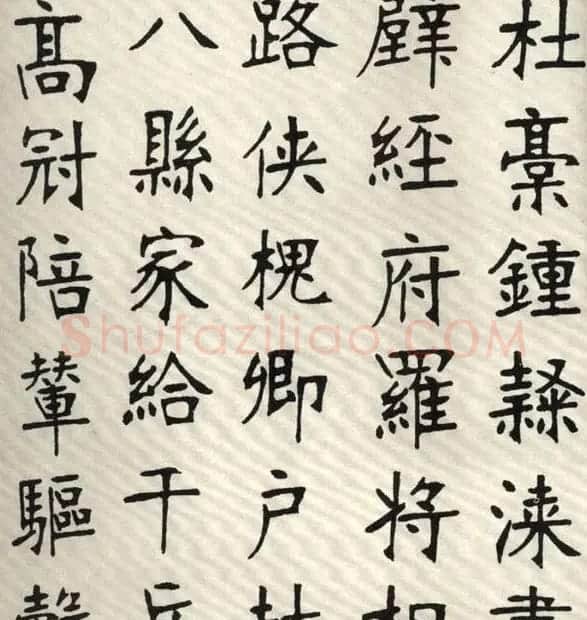 杜稾鍾隸漆書
壁經府羅将相
路俠槐卿户封
八縣家給千兵
髙冠陪輦驅轂
Shufaziliao.COM